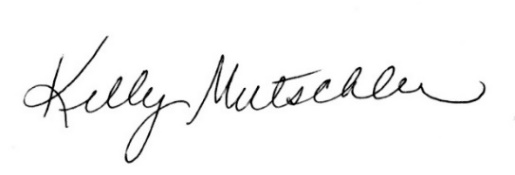 Kelly Mutschler